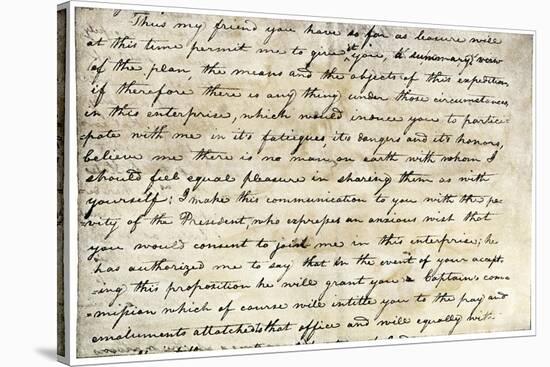 Thus my friend you have so far as leasure will
at this time permit me to give it you, a summary view
of the plan, the means and the objects of this expedition
if therefore there is any thing under those circumstances,
in this enterprise, which would induce you to partici-
pate with me in it's fatiegues, it's dangers and it's honors,
believe me there is no man on earth with whom I
should feel equal pleasure in sharing them as with
yourself; I make this communication to you with the pr
vity of the President, who expresses an anxious wish that
you would consent to join me in this enterprise; he
has authorized me to say that in the event of your accept-
ing this proposition he will grant you a Captain's com
mission which of course will intitle you to the pay and
emoluments attatched to that office and will equally with